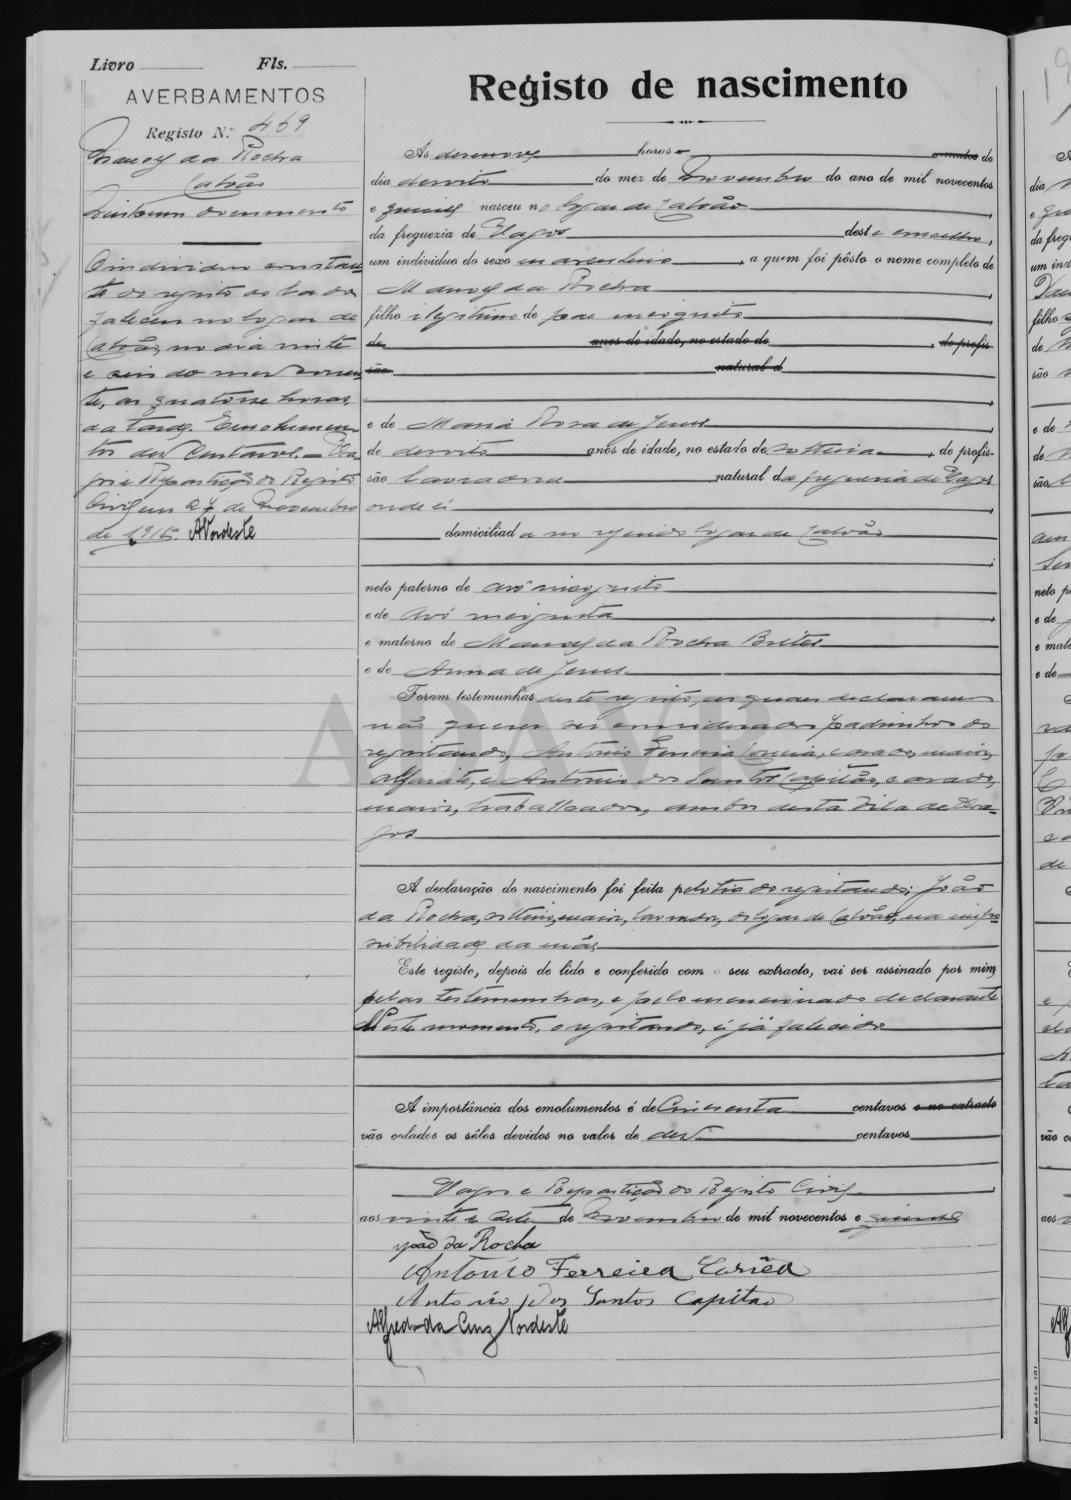 Livro Fls.
AVERBAMENTOS
Registo N.º 469
Manoel da Rocha
Calvão
Emolumento
O individuo constan
te do registo ao lado
faleceu no logar de
Calvão, no dia vinte
e seis do mez corren
te, as quatorse horas
da tarde. Emolumen
tos dez centavos. Va
gos e Repartição do Registo
Civil em 27 de Novembro
de 1915. ANordeste
Registo de nascimento
As desenove horas e minutos do
dia desoito do mez de Novembro do ano de mil novecentos
e quinze nasceu no logar de Calvão
da freguezia de Vagos deste concelho,
um individuo do sexo masculino, a quem foi pôsto o nome completo de
Manoel da Rocha
filho ilegitimo de pae incognito
de anos de idade, no estado de, de profis-
são natural d
e de Maria Rosa de Jesus
de desoito anos de idade, no estado de solteira, de profis-
são lavradora natural da freguezia de Vagos
onde é
domiciliada no referido logar de Calvão
neto paterno de avô incognito
e de avó incognita
e materno de Manoel da Rocha Brites
e de Anna de Jesus
Foram testemunhas deste registo, as quaes declararam
não querer ser considerados padrinhos do
registando, Antonio Ferreira Correia, casado, maior,
alfaiate, e Antonio dos Santos Capitão, casado,
maior, trabalhador, ambos desta Vila de Va-
gos
A declaração do nascimento foi feita pelo tio do registando, João
da Rocha, solteiro, maior, lavrador, do logar de Calvão, na impos
sibilidade da mãe
Este registo, depois de lido e conferido com o seu extracto, vai ser assinado por mim,
pelas testemunhas, e pelo mencionado declarante
Neste momento, o registando, é já falecido
A importância dos emolumentos é de Cincoenta centavos e no extracto
vão colados os sêlos devidos no valor de dez centavos
Vagos e Repartição do Registo Civil
aos vinte e sete de Novembro de mil novecentos e quinze
João da Rocha
Antonio Ferreira Corrêa
Antonio dos Santos Capitão
Alfredo da Cruz Nordeste
Modelo 101